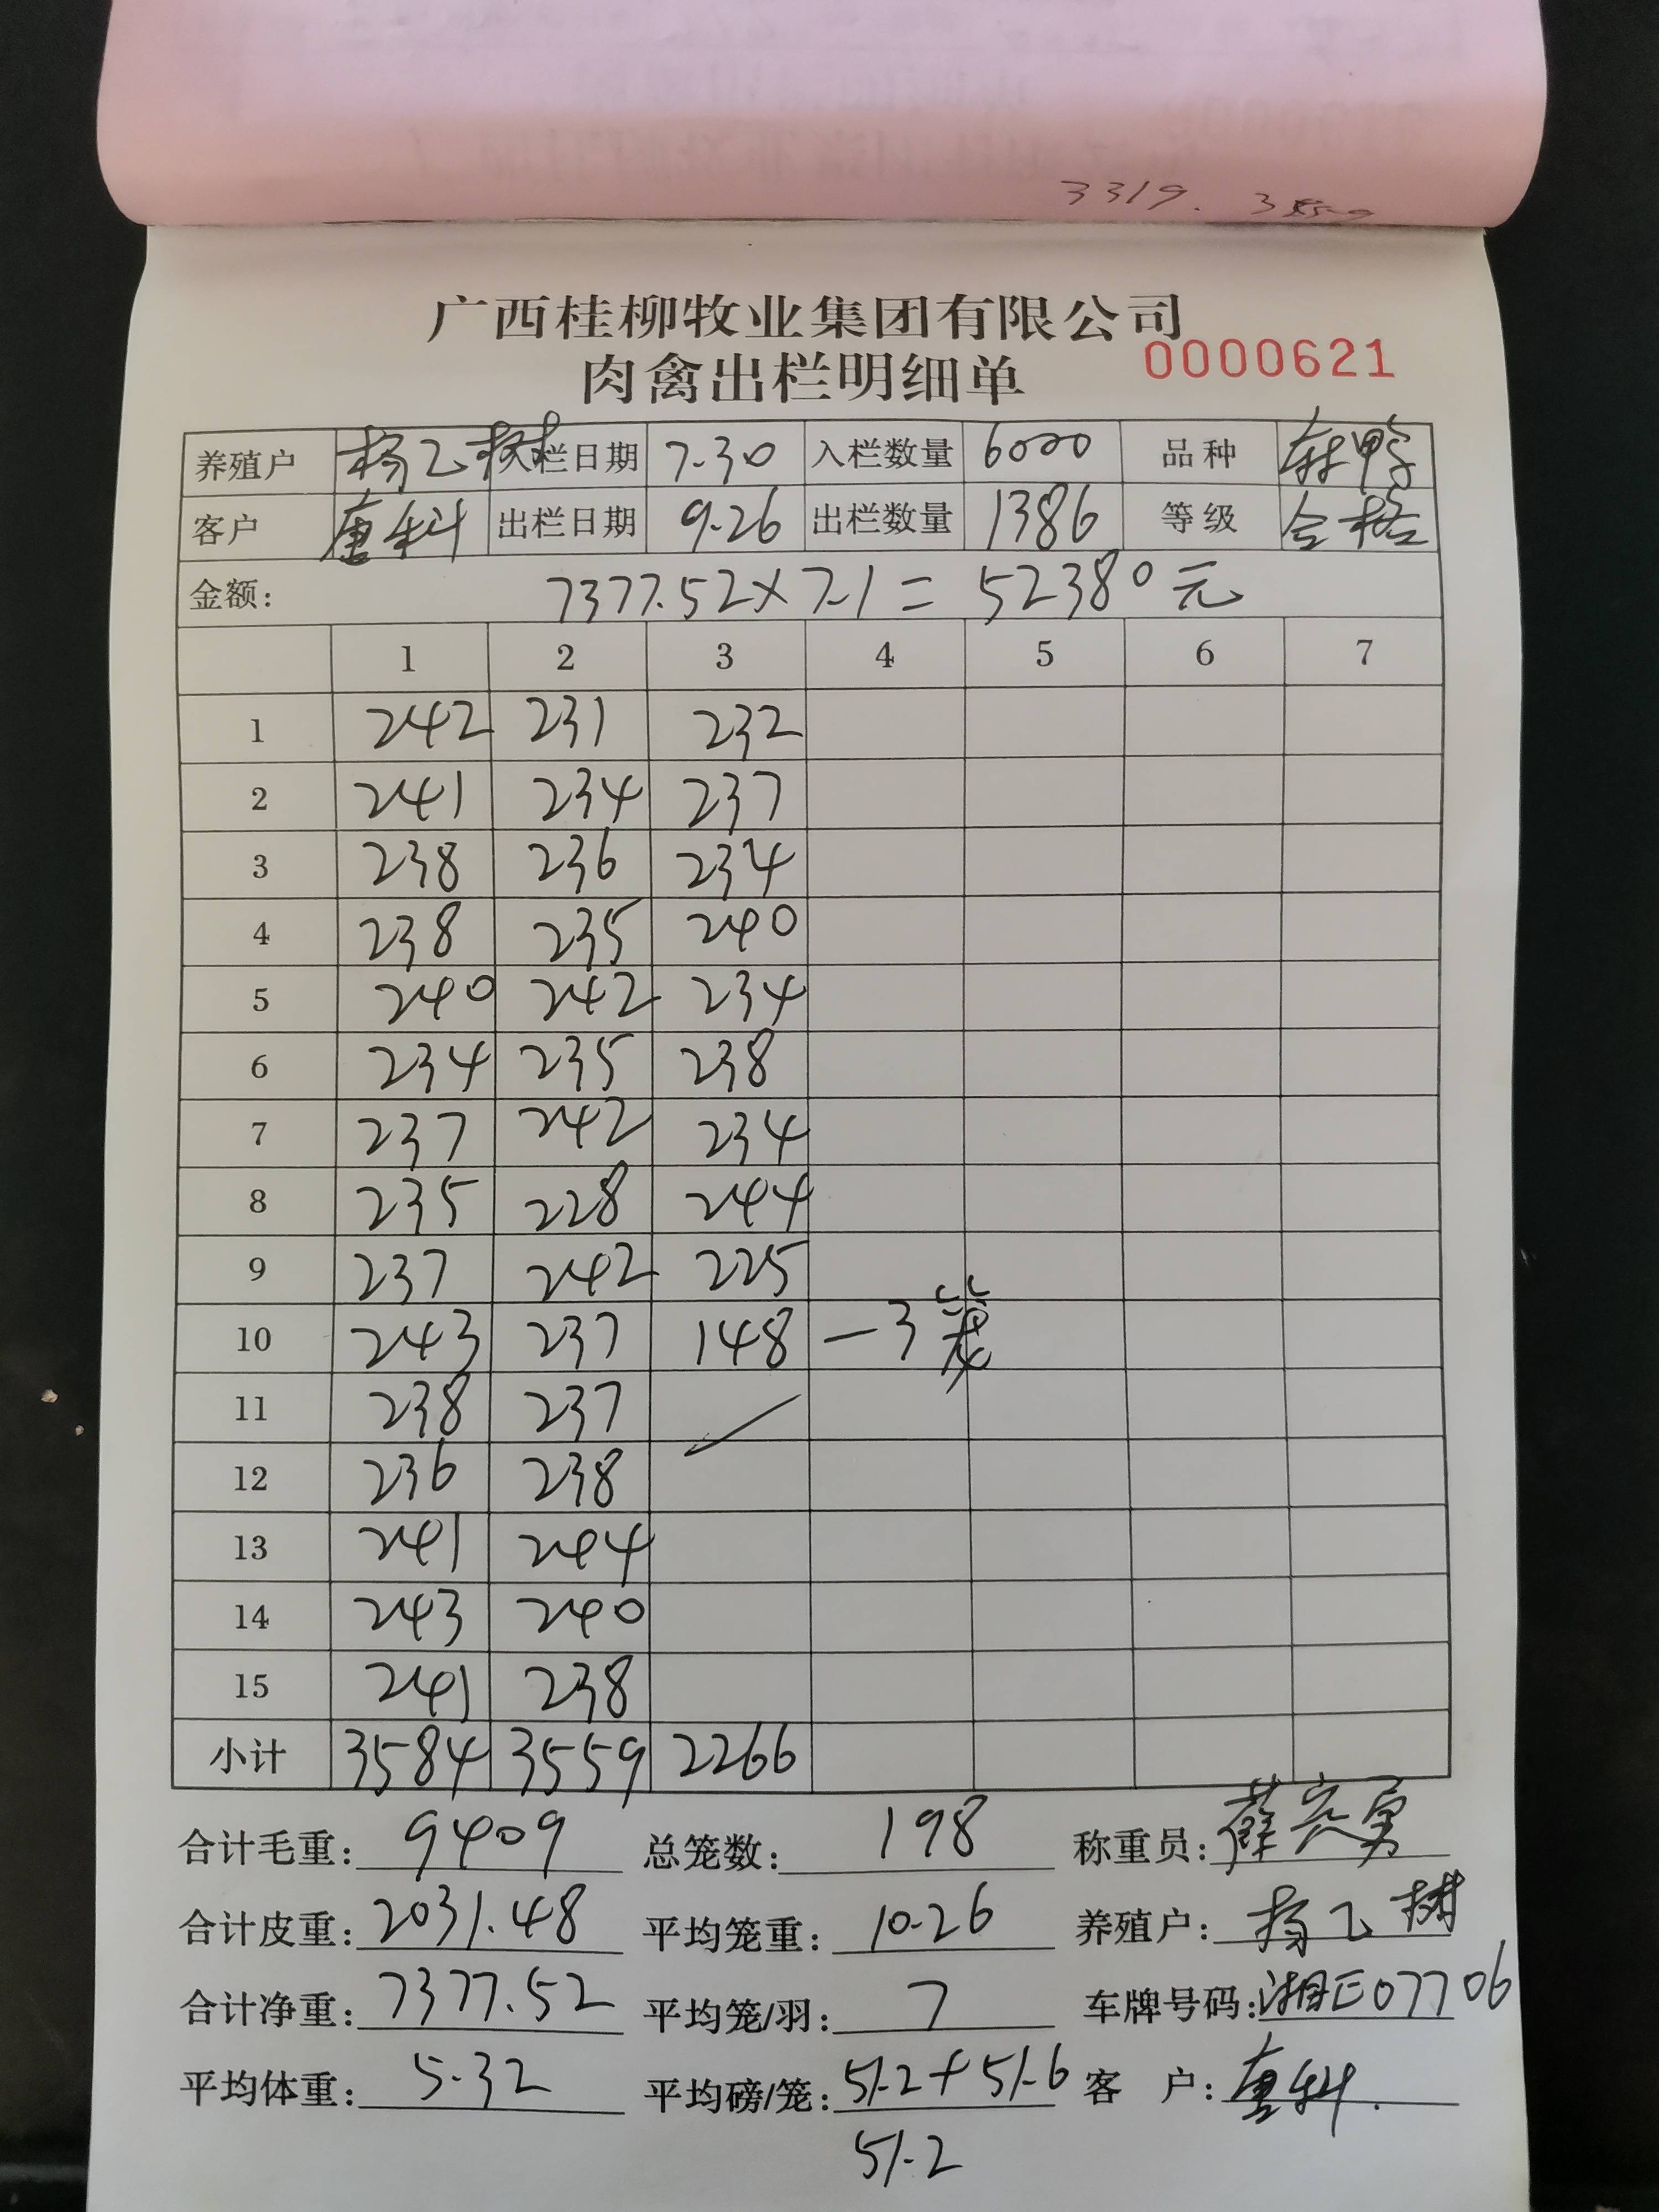 3319.
广西桂柳牧业集团有限公司
肉禽出栏明细单 0000621
养殖户 杨乙树 入栏日期 7.30 入栏数量 6000 品种 麻鸭
客户 唐科 出栏日期 9.26 出栏数量 1386 等级 合格
金额: 7377.52×7.1=52380元
1 2 3 4 5 6 7
1 242 231 232
2 241 234 237
3 238 236 234
4 238 235 240
5 240 242 234
6 234 235 238
7 237 242 234
8 235 228 244
9 237 242 225
10 243 237 148 —3笼
11 238 237
12 236 238
13 241 244
14 243 240
15 241 238
小计 3584 3559 2266
合计毛重: 9409 总笼数: 198 称重员: 薛兴勇
合计皮重: 2031.48 平均笼重: 10.26 养殖户: 杨乙树
合计净重: 7377.52 平均笼/羽: 7 车牌号码: 湘E07706
平均体重: 5.32 平均磅/笼: 51.2+51.6 客 户: 唐科.
51.2